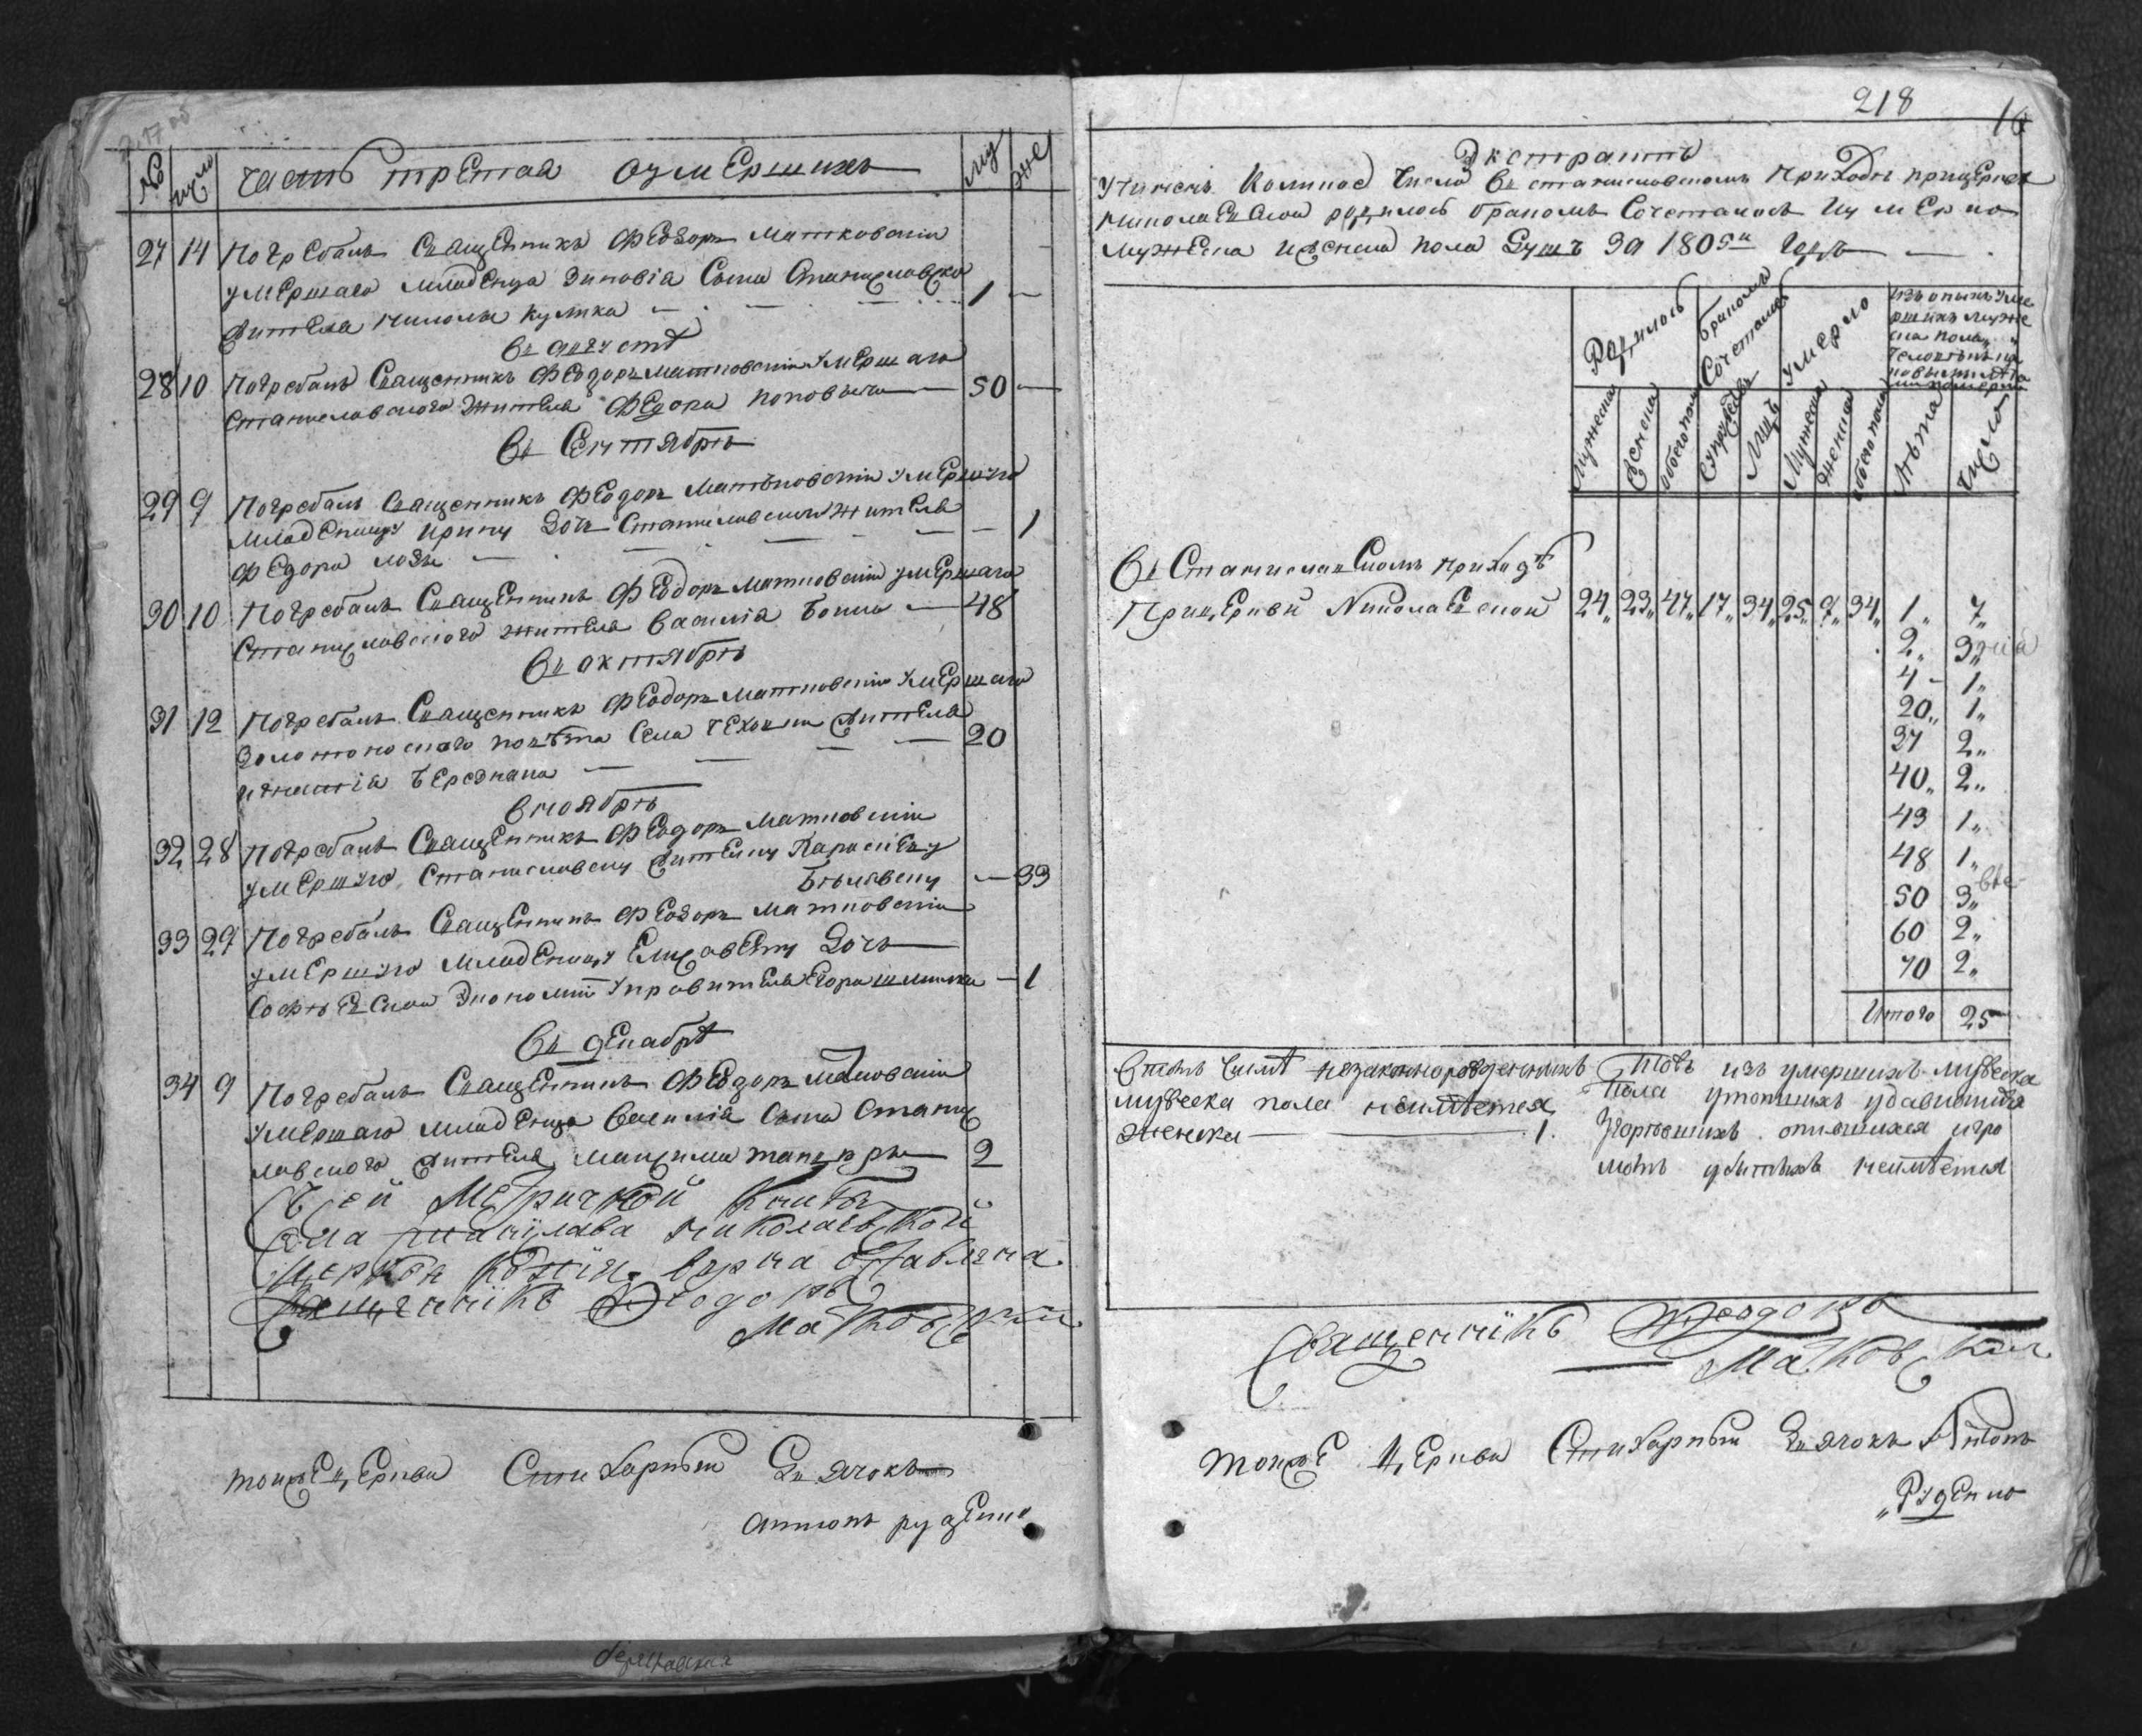 № число часть третая о умершихъ му же
27 14 Погребалъ Священникъ Феодоръ Матковскій
умершаго младенца Зиновія Сына Станиславско
жителя Николы Кулика — 1 —
въ августѣ
28 10 Погребалъ Священникъ Феодоръ Матковскій умершаго
Станиславского жителя Федора Поповича — 50 —
въ Сентябрѣ
29 9 Погребалъ Священникъ Феодоръ Матковскій умершую
младенцу Ирину Дочь Станиславского жителя — 1
Федора
30 10 Погребалъ Священникъ Феодоръ Матковскій умершаго
Станиславского жителя Василія — 48
въ октябрѣ
31 12 Погребалъ Священникъ Феодоръ Матковскій умершаго
Золотоноского повѣта Села жителя — 20
Игнатія
в ноябрѣ
32 28 Погребалъ Священникъ Феодоръ Матковскій
умершую Станиславску жителку
— 33
33 29 Погребалъ Священникъ Феодоръ Матковскій
умершую младенцу Елисавету Дочь
Софіевской Экономіи управителя Егора — 1
въ декабрѣ
34 9 Погребалъ Священникъ Феодоръ Матковскій
умершаго младенца Василія Сына Станис
лавского жителя Максима 2
Къ сей Метричной книгѣ
Села Станислава Николаевской
Церкви копія верна оставлена
Священникъ Феодоръ
Матковскій
тойже Церкви Стихарный Дьячокъ
Антонъ руденко
218
16
Экстрактъ
Учиненъ Коликое Число въ станиславскомъ Приходѣ при церкве
Николаевской родилось бракомъ Сочеталось и умерло
мужеска и женска пола Душъ за 1805й Годъ —
Родилось
бракомъ Сочеталось
Умерло
изъ оныхъ уме
ршихъ муже
ска пола
Человѣкъ на
мужеска
женска
обоего пола
Супружевъ
Лицъ
Мужеска
женска
обоего пола
Лѣта
Число
въ Станиславскомъ приходѣ
При церкви Николаевской 24 23 47 17 34 25 9 34 1 7
2 3
4 1
20 1
37 2
40 2
43 1
48 1
50 3
60 2
70 2
Итого 25
в томъ числѣ незаконнорожденныхъ
мужеска пола неимѣется
женска — 1.
Тожъ изъ умершихъ мужеска
пола утопшихъ удавшихся
Угорѣвшихъ опившихся и гро
момъ убитыхъ неимѣется
Священникъ Феодоръ
Матковскій
тойже Церкви Стихарный Дьячокъ Антонъ
Руденко